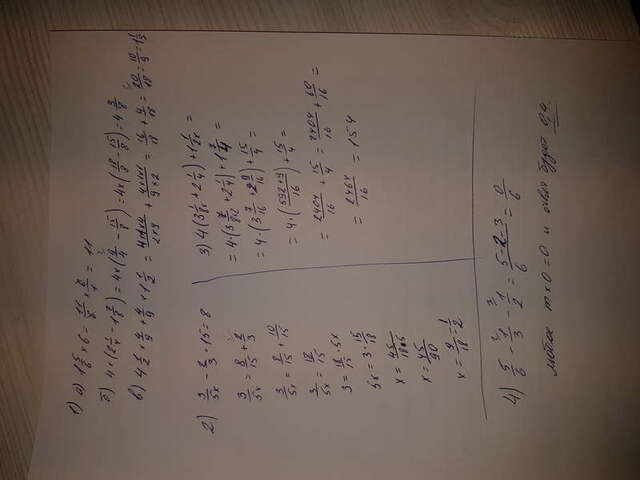 1) а) 1 5/6 × 6 = 11/6 × 6/1 = 11
б) 4×(2 1/4 - 1 7/8) = 4×(9/4 - 15/8) = 4×(18/8 - 15/8) = 4 3/8
в) 4 1/2 × 4/9 + 4/9 × 1 1/2 =
16/18 + 4/18 = 20/18 = 10/9 = 1 1/9
2) 3/5x - 2/3 · 15 = 8
3/5x = 8/15 + 2/3
3/5x = 8/15 + 10/15
3/5x = 18/15
3 = 18/15 · 5x
5x = 3 · 15/18
x = 45/18·5
x = 45/90
x = 9/18 = 1/2
3) 4(3 + 2 1/4) + 1 =
= 4·(3 + 2 1/4) + 1 7/4 =
= 4·(3 7/16 + 2 9/16) + 15/4 =
= 4·(592+9/16) + 15/4 =
= 2404/16 + 15/4 = 2404/16 + 60/16 =
= 2464/16 = 154
4) 5/6 - 1/3 - 1/2 = 5-2-3/6 = 0/6
любое m×0=0 и ответ будет 0,4.